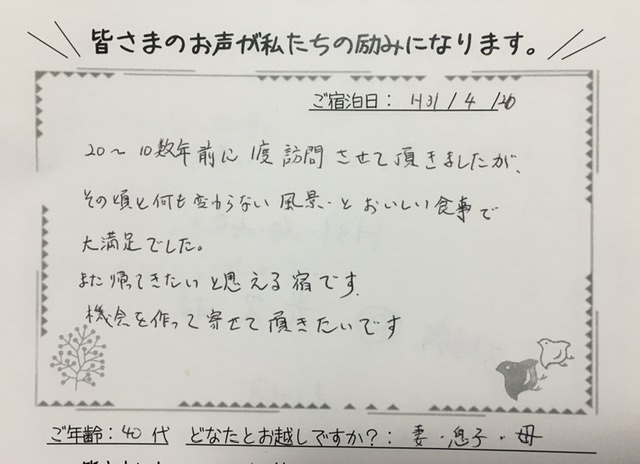 皆さまのお声が私たちの励みになります。
ご宿泊日： H31 / 4 / 20
20〜10数年前に1度 訪問させて頂きましたが、
その頃と何も変わらない風景とおいしい食事で
大満足でした。
また帰ってきたいと思える宿です.
機会を作って寄せて頂きたいです
ご年齢：40代 どなたとお越しですか？： 妻・息子・母